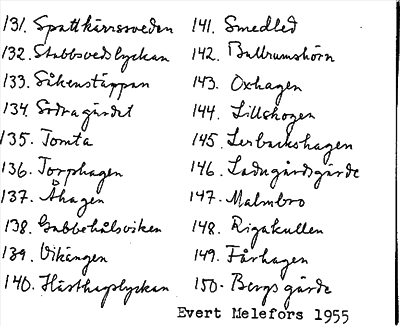 131. Spattkärrssveden
132. Stubbsvedslyckan
133. Såkenstäppan
134. Södra gärdet
135. Tomta
136. Torphagen
137. Åhagen
138. Gabbehålsviken
139. Vikängen
140. Hästhagslyckan
141. Smedled
142. Bullrumshörn
143. Oxhagen
144. Lillskogen
145. Lerbackshagen
146. Ladugårdsgärde
147. Malmbro
148. Rigakullen
149. Fårhagen
150. Bergsgärde
Evert Melefors 1955